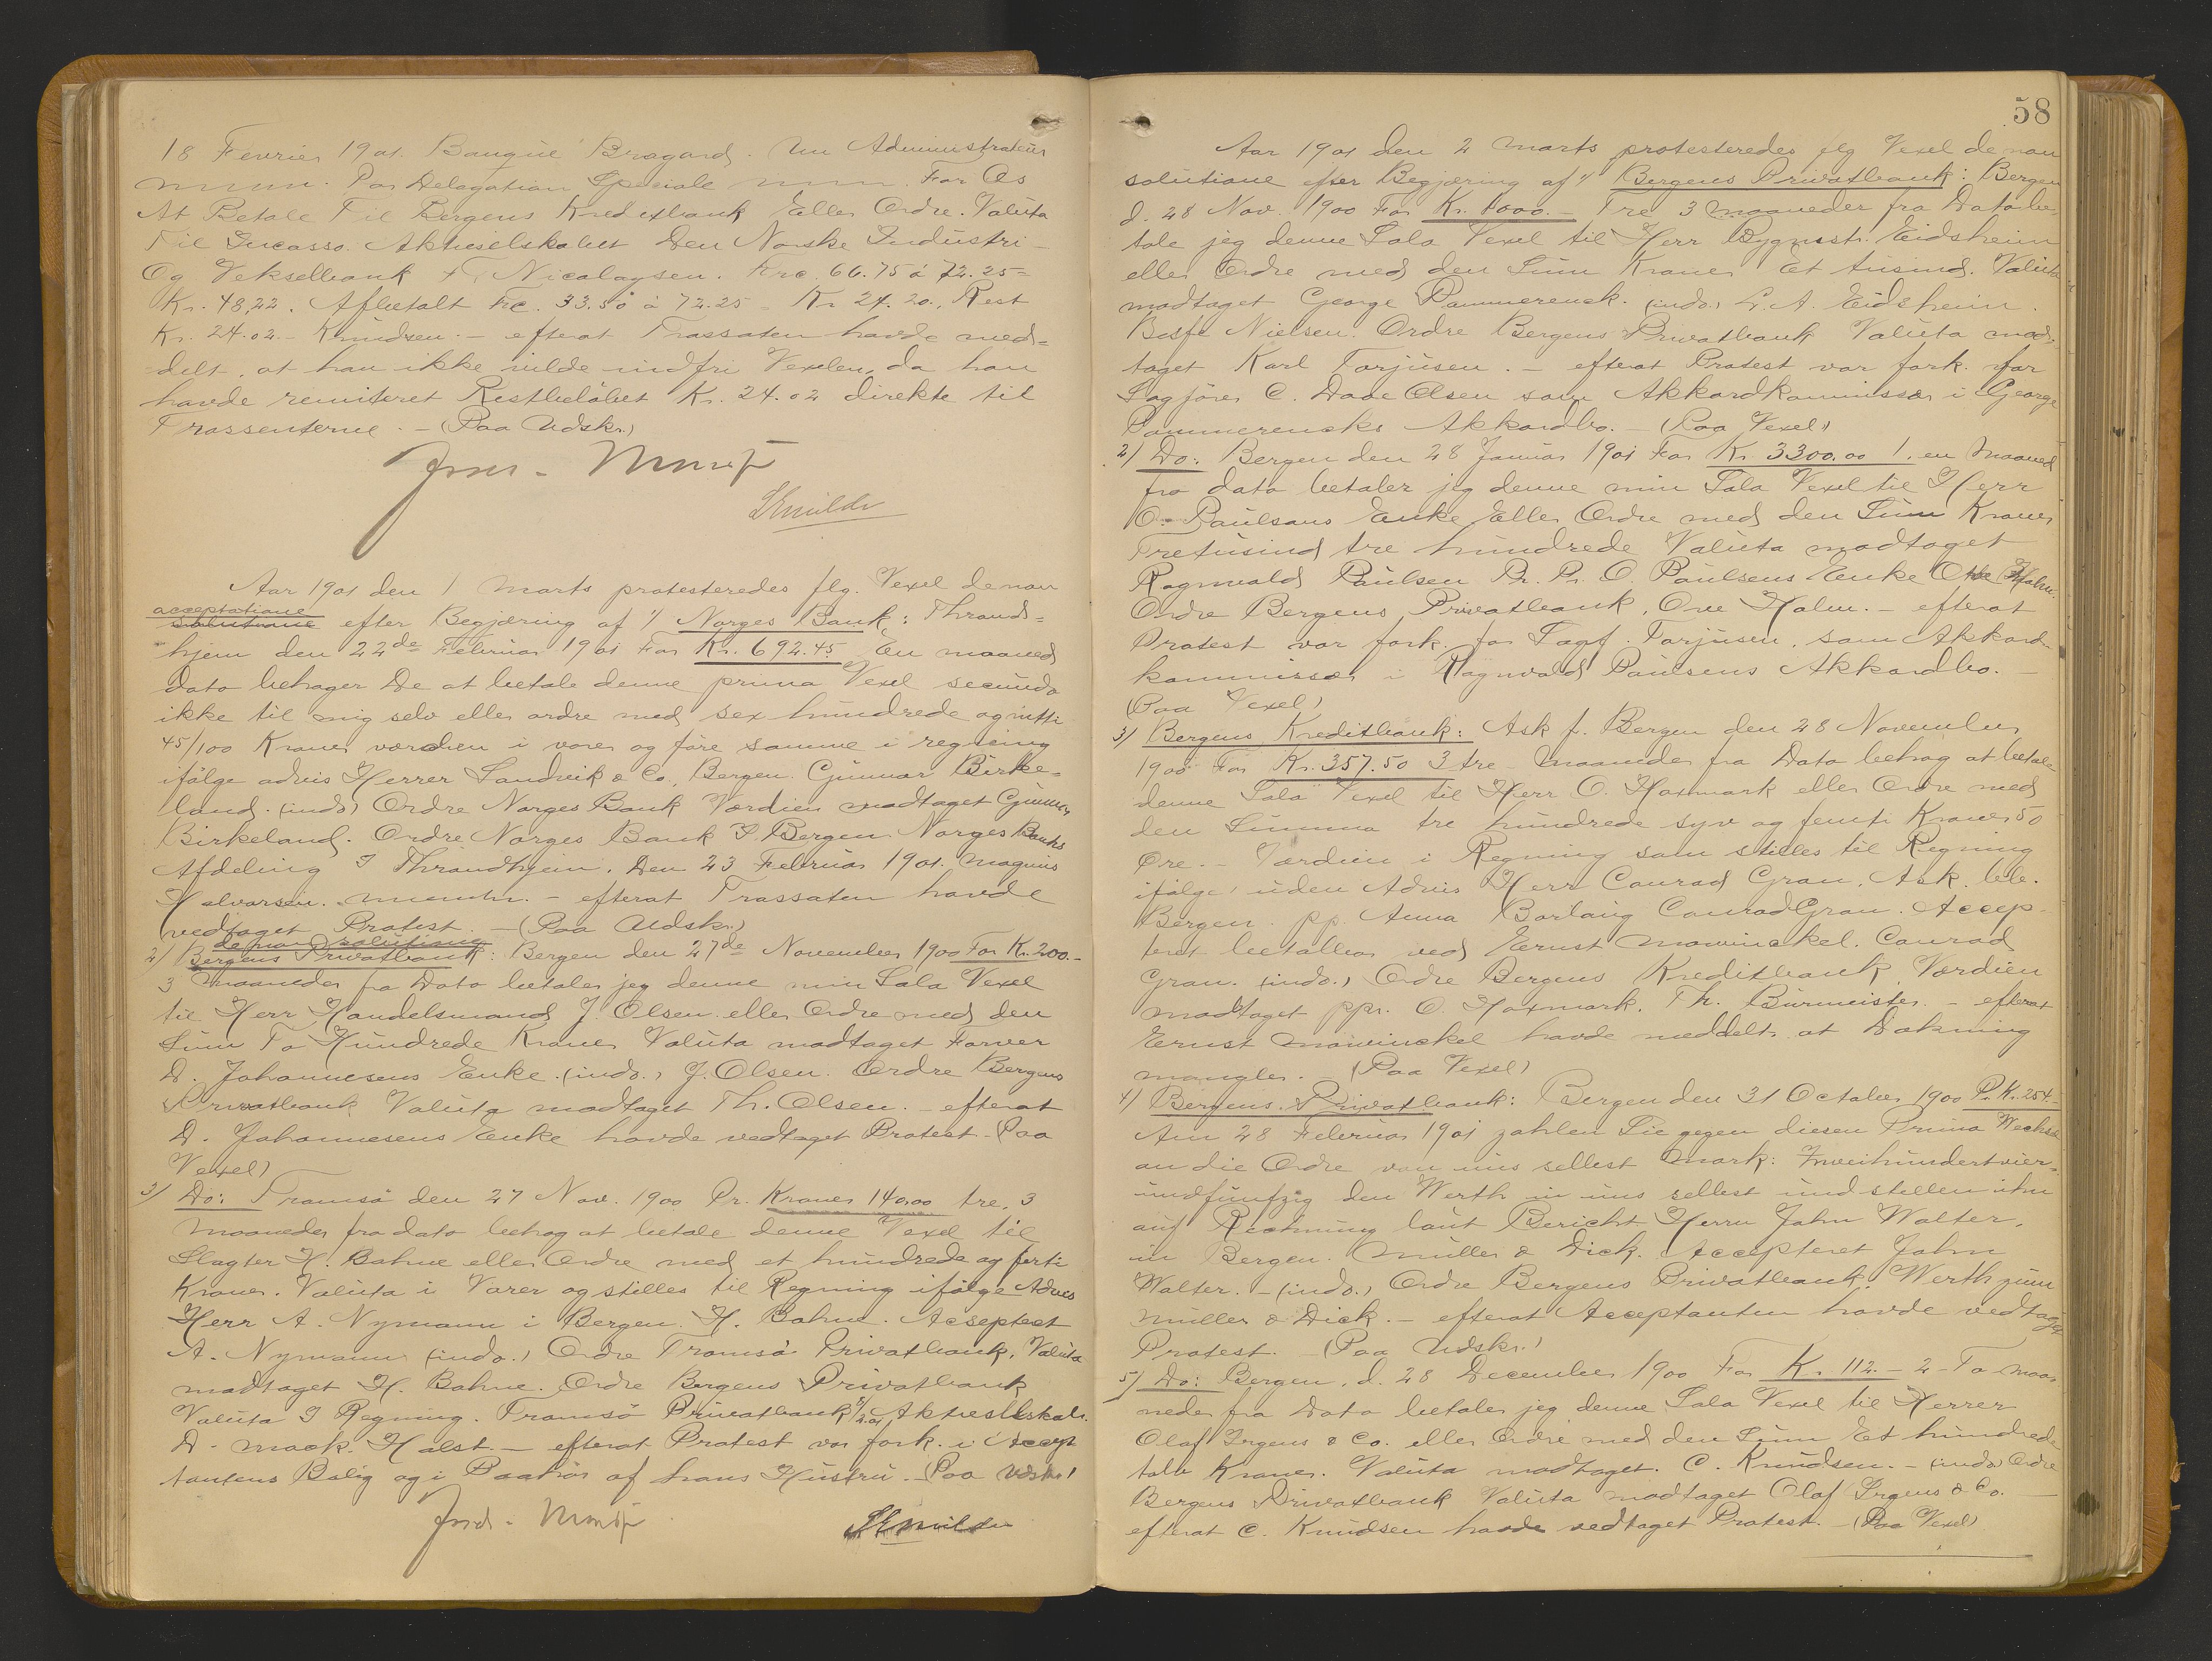 18 Fevrier 1901. Banque Bragard. Un Administrateur
Par Delegation Speciale For Os
At Betale Til Bergens Kreditbank Eller Ordre. Valuta
Til Incasso. Aktieselskabet Den Norske Industri-
Og Vekselbank Nicolaysen. Frc. 66.75 à 72.25=
Kr. 48,22. Afbetalt Frc. 33.50 à 72.25 = Kr 24.20., Rest
Kr. 24.02.- Knudsen. - efterat Trassaten havde med=
delt, at han ikke vilde indfri Vexelen, da han
havde remitteret Restbeløbet Kr. 24.02 direkte til
Trassenterne. - (Paa Udskr.)
Aar 1901 den 1 Marts protesteredes flg. Vexel de non
acceptatione
solutione efter Begjæring af 1/ Norges Bank: Thrond=
hjem den 22de Februar 1901 For Kr. 692.45 En maaned
dato behager De at betale denne prima Vexel secunda
ikke til mig selv eller ordre med sex hundrede og nitti
45/100 Kroner værdien i varer og føre samme i regning
ifølge advis Herrer Sandvik & Co., Bergen. Gunnar Birke=
land. (indo.) Ordre Norges Bank Værdien modtaget Gunnar
Birkeland. Ordre Norges Bank I Bergen Norges Banks
Afdeling I Throndhjem. Den 23 Februar 1901. Magnus
Halvorsen. - efterat Trassaten havde
vedtaget Protest. - (Paa Udskr.)
de non solutione
2/ Bergens Privatbank: Bergen den 27de November 1900 For Kr. 200.-
3 Maaneder fra Dato betaler jeg denne min Sola Vexel
til Herr Handelsmand J. Olsen eller Ordre med den
Sum To Hundrede Kroner Valuta modtaget Farver
D. Johannesens Enke. (indo.) J. Olsen. Ordre Bergens
Privatbank Valuta modtaget Th. Olsen. - efterat
D. Johannesens Enke havde vedtaget Protest - (Paa
Vexel)
3/ Do: Tromsø den 27 Nov. 1900 Pr. Kroner 140,00 tre, 3
Maaneder fra dato behag at betale denne Vexel til
Slagter H. Bahne eller Ordre med et hundrede og førti
Kroner. Valuta i Varer og stilles til Regning ifølge Advis
Herr A. Nymann i Bergen. H. Bahne. Acseptert
A. Nymann (indo.) Ordre Tromsø Privatbank, Valuta
modtaget H. Bahne. Ordre Bergens Privatbank
Valuta I Regning. Tromsø Privatbank Aktieselskab.
D. Mack. Halst. - efterat Protest var fork. i Accep
tantens Bolig og i Paahør af hans Hustru. - (Paa Udskr.)
58
Aar 1901 den 2 Marts protesteredes flg Vexel de non
solutione efter Begjæring af 1/ Bergens Privatbank: Bergen
d. 28 Nov. 1900 For Kr. 1000.- Tre 3 Maaneder fra Dato be-
tale jeg denne Sola Vexel til Herr Bygmstr. Eidsheim
eller Ordre med den Sum Kroner Et tusind. Valuta
modtaget George Pommerenck. (indo.) L. A. Eidsheim.
Nielsen. Ordre Bergens Privatbank Valuta mod-
taget Karl Torjusen. - efterat Protest var fork. for
Sagfører C. Dade Olsen som Akkordkommissær i George
Pommerencks Akkordbo. - (Paa Vexel)
2/ Do: Bergen den 28 Januar 1901 For Kr. 3300.00 1. en Maaned
fra dato betaler jeg denne min Sola Vexel til Herr
O. Paulsens Enke Eller Ordre med den Sum Kroner
Tretusind tre hundrede Valuta modtaget
Ragnvald Paulsen Pr. Pr. O. Paulsens Enke Ove Holm.
Ordre Bergens Privatbank, Ove Holm. - efterat
Protest var fork. for Sagf. Torjusen, som Akkord-
kommissær i Ragnvald Paulsens Akkordbo. -
(Paa Vexel)
3/ Bergens Kreditbank: Ask p. Bergen den 28 November
1900 For Kr. 357.50 3 tre Maaneder fra Dato behag at betale
denne Sola Vexel til Herr O. Haxmark eller Ordre med
den Summa tre hundrede syv og femti Kroner 50
Øre. - Værdien i Regning som stilles til Regning
ifølge uden Advis Herr Conrad Gran, Ask, ble.
Bergen. pp. Anna Borlaug Conrad Gran. Accep-
teret betalbar ved Ernst Mowinckel. Conrad
Gran. (indo.) Ordre Bergens Kreditbank, Værdien
modtaget ppr. O. Haxmark, Th. Burmeister. - efterat
Ernst Mowinckel havde meddelt, at Dækning
mangler. (Paa Vexel)
4/ Bergens Privatbank: Bergen den 31 October 1900 P. K. 254.-
Am 28 Februar 1901 zahlen Sie gegen diesen Prima Wechsel
an die Ordre von uns selbst Mark: Zweihundertvier-
undfunfzig den Werth in uns selbst und stellen ihn
auf Rechnung laut Bericht Herrn John Walter,
in Bergen. Müller & Dick. Accepteret John
Walter. - (indo.) Ordre Bergens Privatbank. Werth zum
Müller & Dick. - efterat Acceptanten havde vedtaget
Protest. - (Paa Udskr.)
5/ Do: Bergen, d. 28 December 1900 For Kr. 112.- 2 - To Maa-
neder fra Dato betaler jeg denne Sola Vexel til Herrer
Olaf Irgens & Co. eller Ordre med den Sum Et hundrede
tolv Kroner. Valuta modtaget. C. Knudsen. - (indo.) Ordre
Bergens Privatbank Valuta modtaget Olaf Irgens & Co. -
efterat C. Knudsen havde vedtaget Protest. - (Paa Vexel)